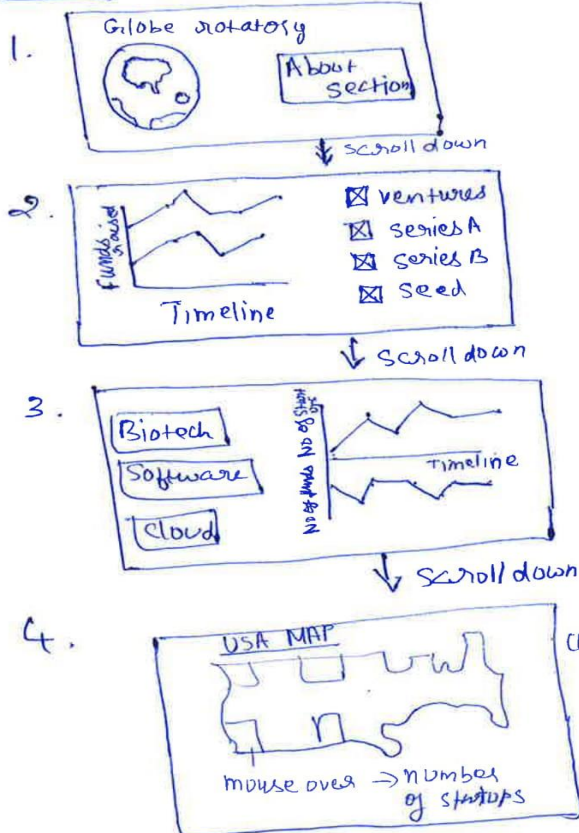 1.
Globe rotatory
About
section
scroll down
2.
Funds raised
Timeline
ventures
series A
series B
Seed
scroll down
3.
Biotech
Software
Cloud
No of
Timeline
scroll down
4.
USA MAP
mouse over → number
of startups